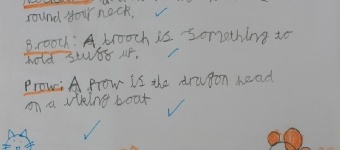 round your neck.
Brooch: A brooch is something to
hold stuff up.
Prow: A prow is the dragon head
on a viking boat